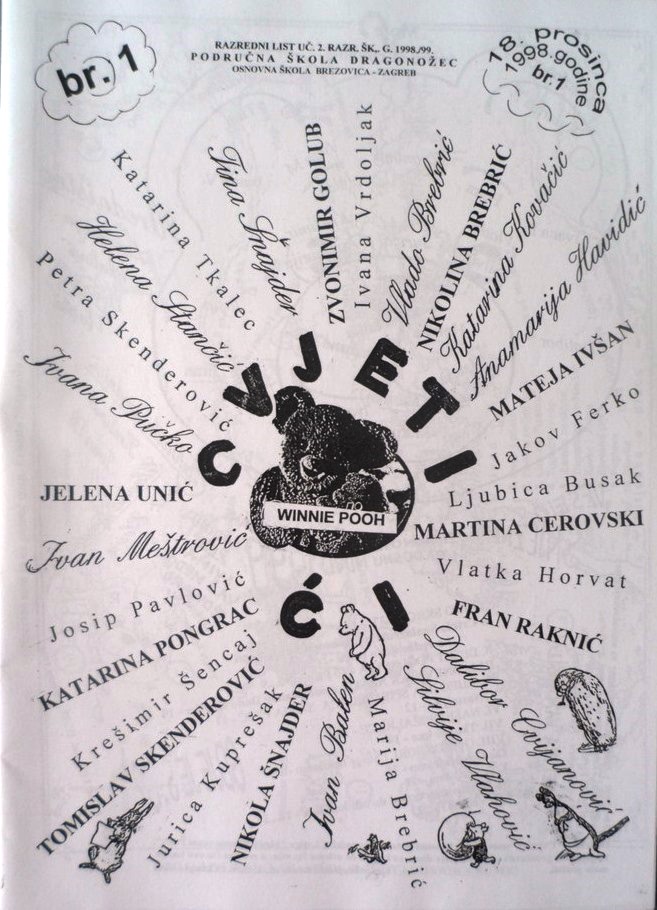 br. 1
RAZREDNI LIST UČ. 2. RAZR. ŠK. G. 1998./99.
PODRUČNA ŠKOLA DRAGONOŽEC
OSNOVNA ŠKOLA BREZOVICA - ZAGREB
18. prosinca
1998. godine
br. 1
Ivana Pučko
Petra Skenderović
Helena Stančić
Katarina Tkalec
Tina Šnajder
ZVONIMIR GOLUB
Ivana Vrdoljak
Vlado Brebrić
NIKOLINA BREBRIĆ
Katarina Kovačić
Anamarija Havidić
MATEJA IVŠAN
Jakov Ferko
Ljubica Busak
MARTINA CEROVSKI
Vlatka Horvat
FRAN RAKNIĆ
Dalibor Cvijanović
Silvije Vlahović
Marija Brebrić
Ivan Balen
NIKOLA ŠNAJDER
Jurica Kuprešak
TOMISLAV SKENDEROVIĆ
Krešimir Šencaj
KATARINA PONGRAC
Josip Pavlović
Ivan Meštrović
JELENA UNIĆ
CVJETIĆI
WINNIE POOH